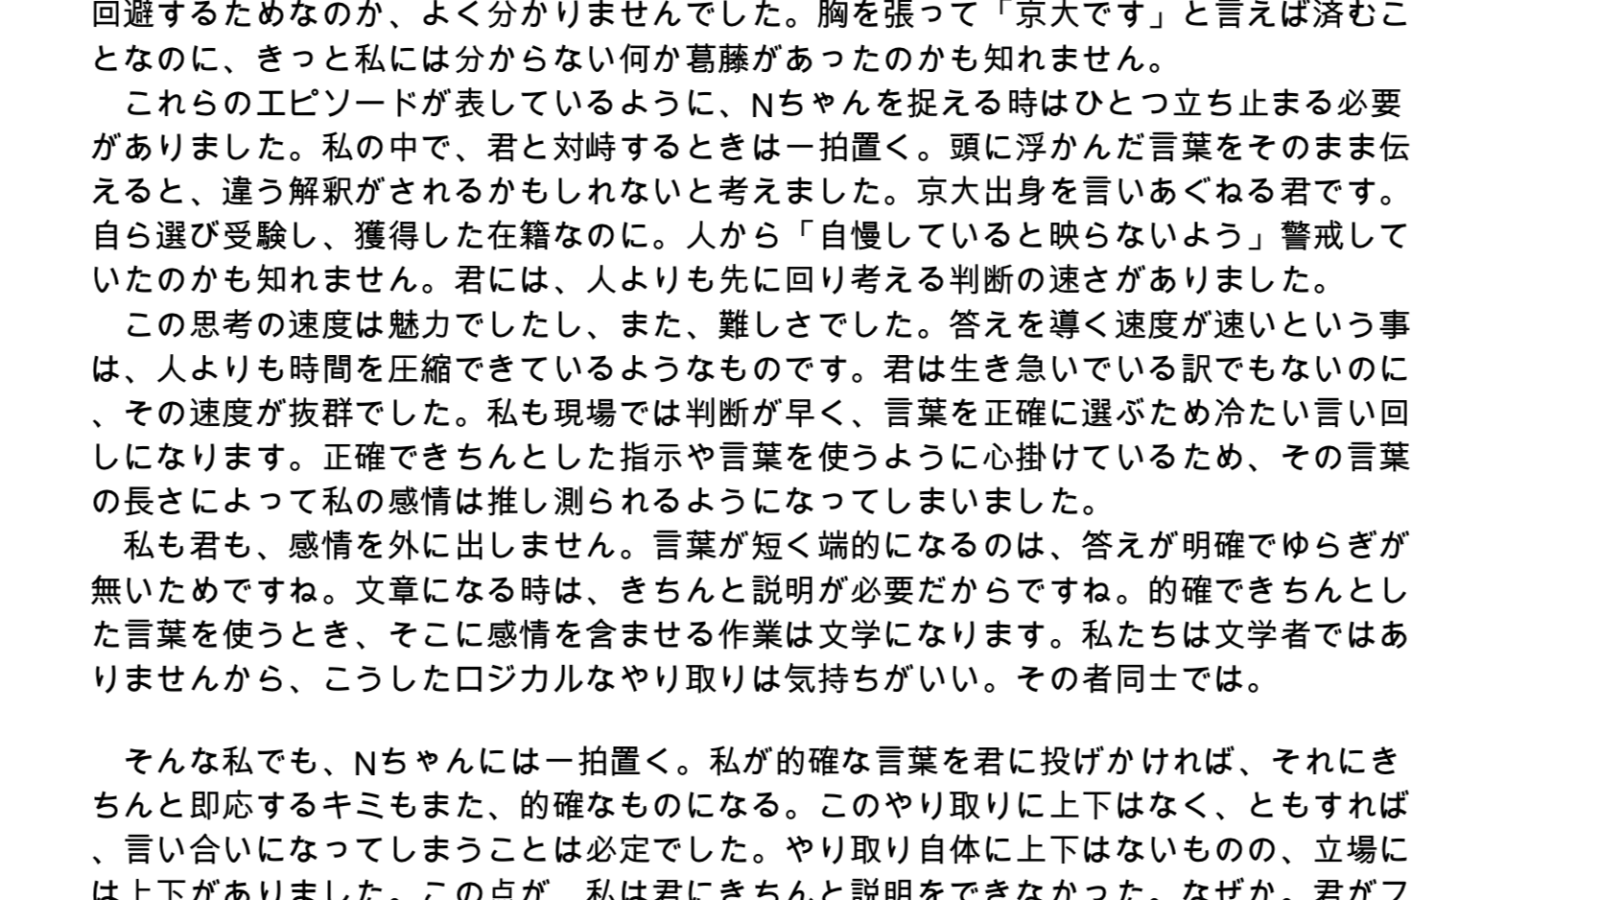 回避するためなのか、よく分かりませんでした。胸を張って「京大です」と言えば済むこ
となのに、きっと私には分からない何か葛藤があったのかも知れません。
これらのエピソードが表しているように、Nちゃんを捉える時はひとつ立ち止まる必要
がありました。私の中で、君と対峙するときは一拍置く。頭に浮かんだ言葉をそのまま伝
えると、違う解釈がされるかもしれないと考えました。京大出身を言いあぐねる君です。
自ら選び受験し、獲得した在籍なのに。人から「自慢していると映らないよう」警戒して
いたのかも知れません。君には、人よりも先に回り考える判断の速さがありました。
この思考の速度は魅力でしたし、また、難しさでした。答えを導く速度が速いという事
は、人よりも時間を圧縮できているようなものです。君は生き急いでいる訳でもないのに
、その速度が抜群でした。私も現場では判断が早く、言葉を正確に選ぶため冷たい言い回
しになります。正確できちんとした指示や言葉を使うように心掛けているため、その言葉
の長さによって私の感情は推し測られるようになってしまいました。
私も君も、感情を外に出しません。言葉が短く端的になるのは、答えが明確でゆらぎが
無いためですね。文章になる時は、きちんと説明が必要だからですね。的確できちんとし
た言葉を使うとき、そこに感情を含ませる作業は文学になります。私たちは文学者ではあ
りませんから、こうしたロジカルなやり取りは気持ちがいい。その者同士では。
そんな私でも、Nちゃんには一拍置く。私が的確な言葉を君に投げかければ、それにき
ちんと即応するキミもまた、的確なものになる。このやり取りに上下はなく、ともすれば
、言い合いになってしまうことは必定でした。やり取り自体に上下はないものの、立場に
は上下がありました。この点が、私は君にきちんと説明をできなかった。なぜか。君がフ